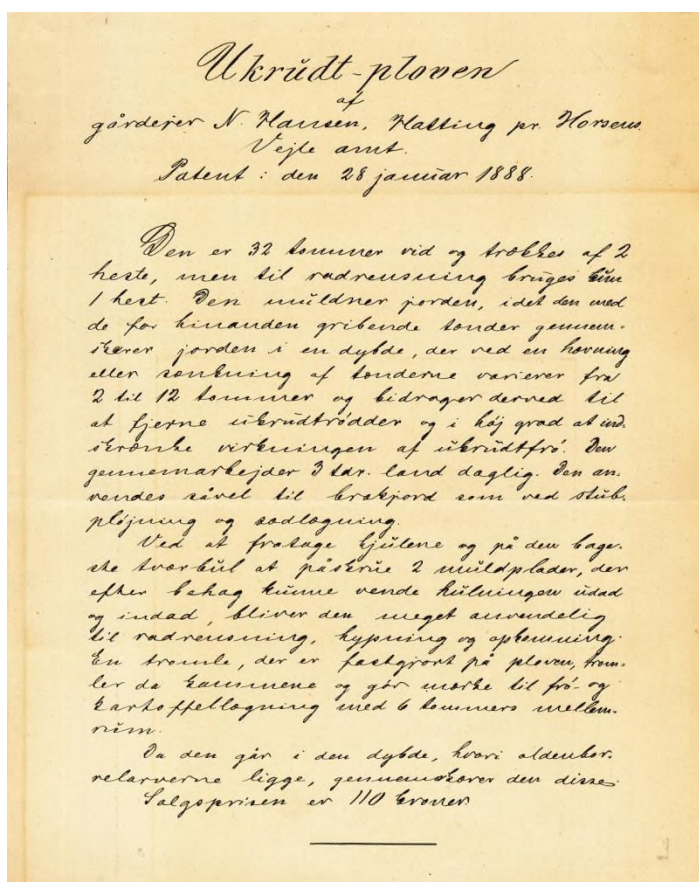 Ukrudt-ploven
af
gårdejer N. Hansen, Hatting pr. Horsens.
Vejle amt.
Patent: den 28 januar 1888.
Den er 32 tommer vid og trækkes af 2
heste, men til radrensning bruges kun
1 hest. Den muldner jorden, idet den med
de for hinanden gribende tænder gennem-
skærer jorden i en dybde, der ved en hævning
eller sænkning af tænderne varierer fra
2 til 12 tommer og bidrager derved til
at fjerne ukrudtrødder og i høj grad at ind-
skrænke virkningen af ukrudtfrø. Den
gennemarbejder 3 tdr. land daglig. Den an-
vendes såvel til brakjord som ved stub-
pløjning og sædlægning.
Ved at fratage hjulene og på den bage-
ste tværbul at påskrue 2 muldplader, der
efter behag kunne vende hulningen udad
og indad, bliver den meget anvendelig
til radrensning, hypning og opkamning.
En tromle, der er fastgjort på ploven, trom-
ler da kammene og gør mærke til frø- og
kartoffellægning med 6 tommers mellem-
rum.
Da den går i den dybde, hvori oldenbor-
relarverne ligge, gennemskærer den disse.
Salgsprisen er 110 kroner.